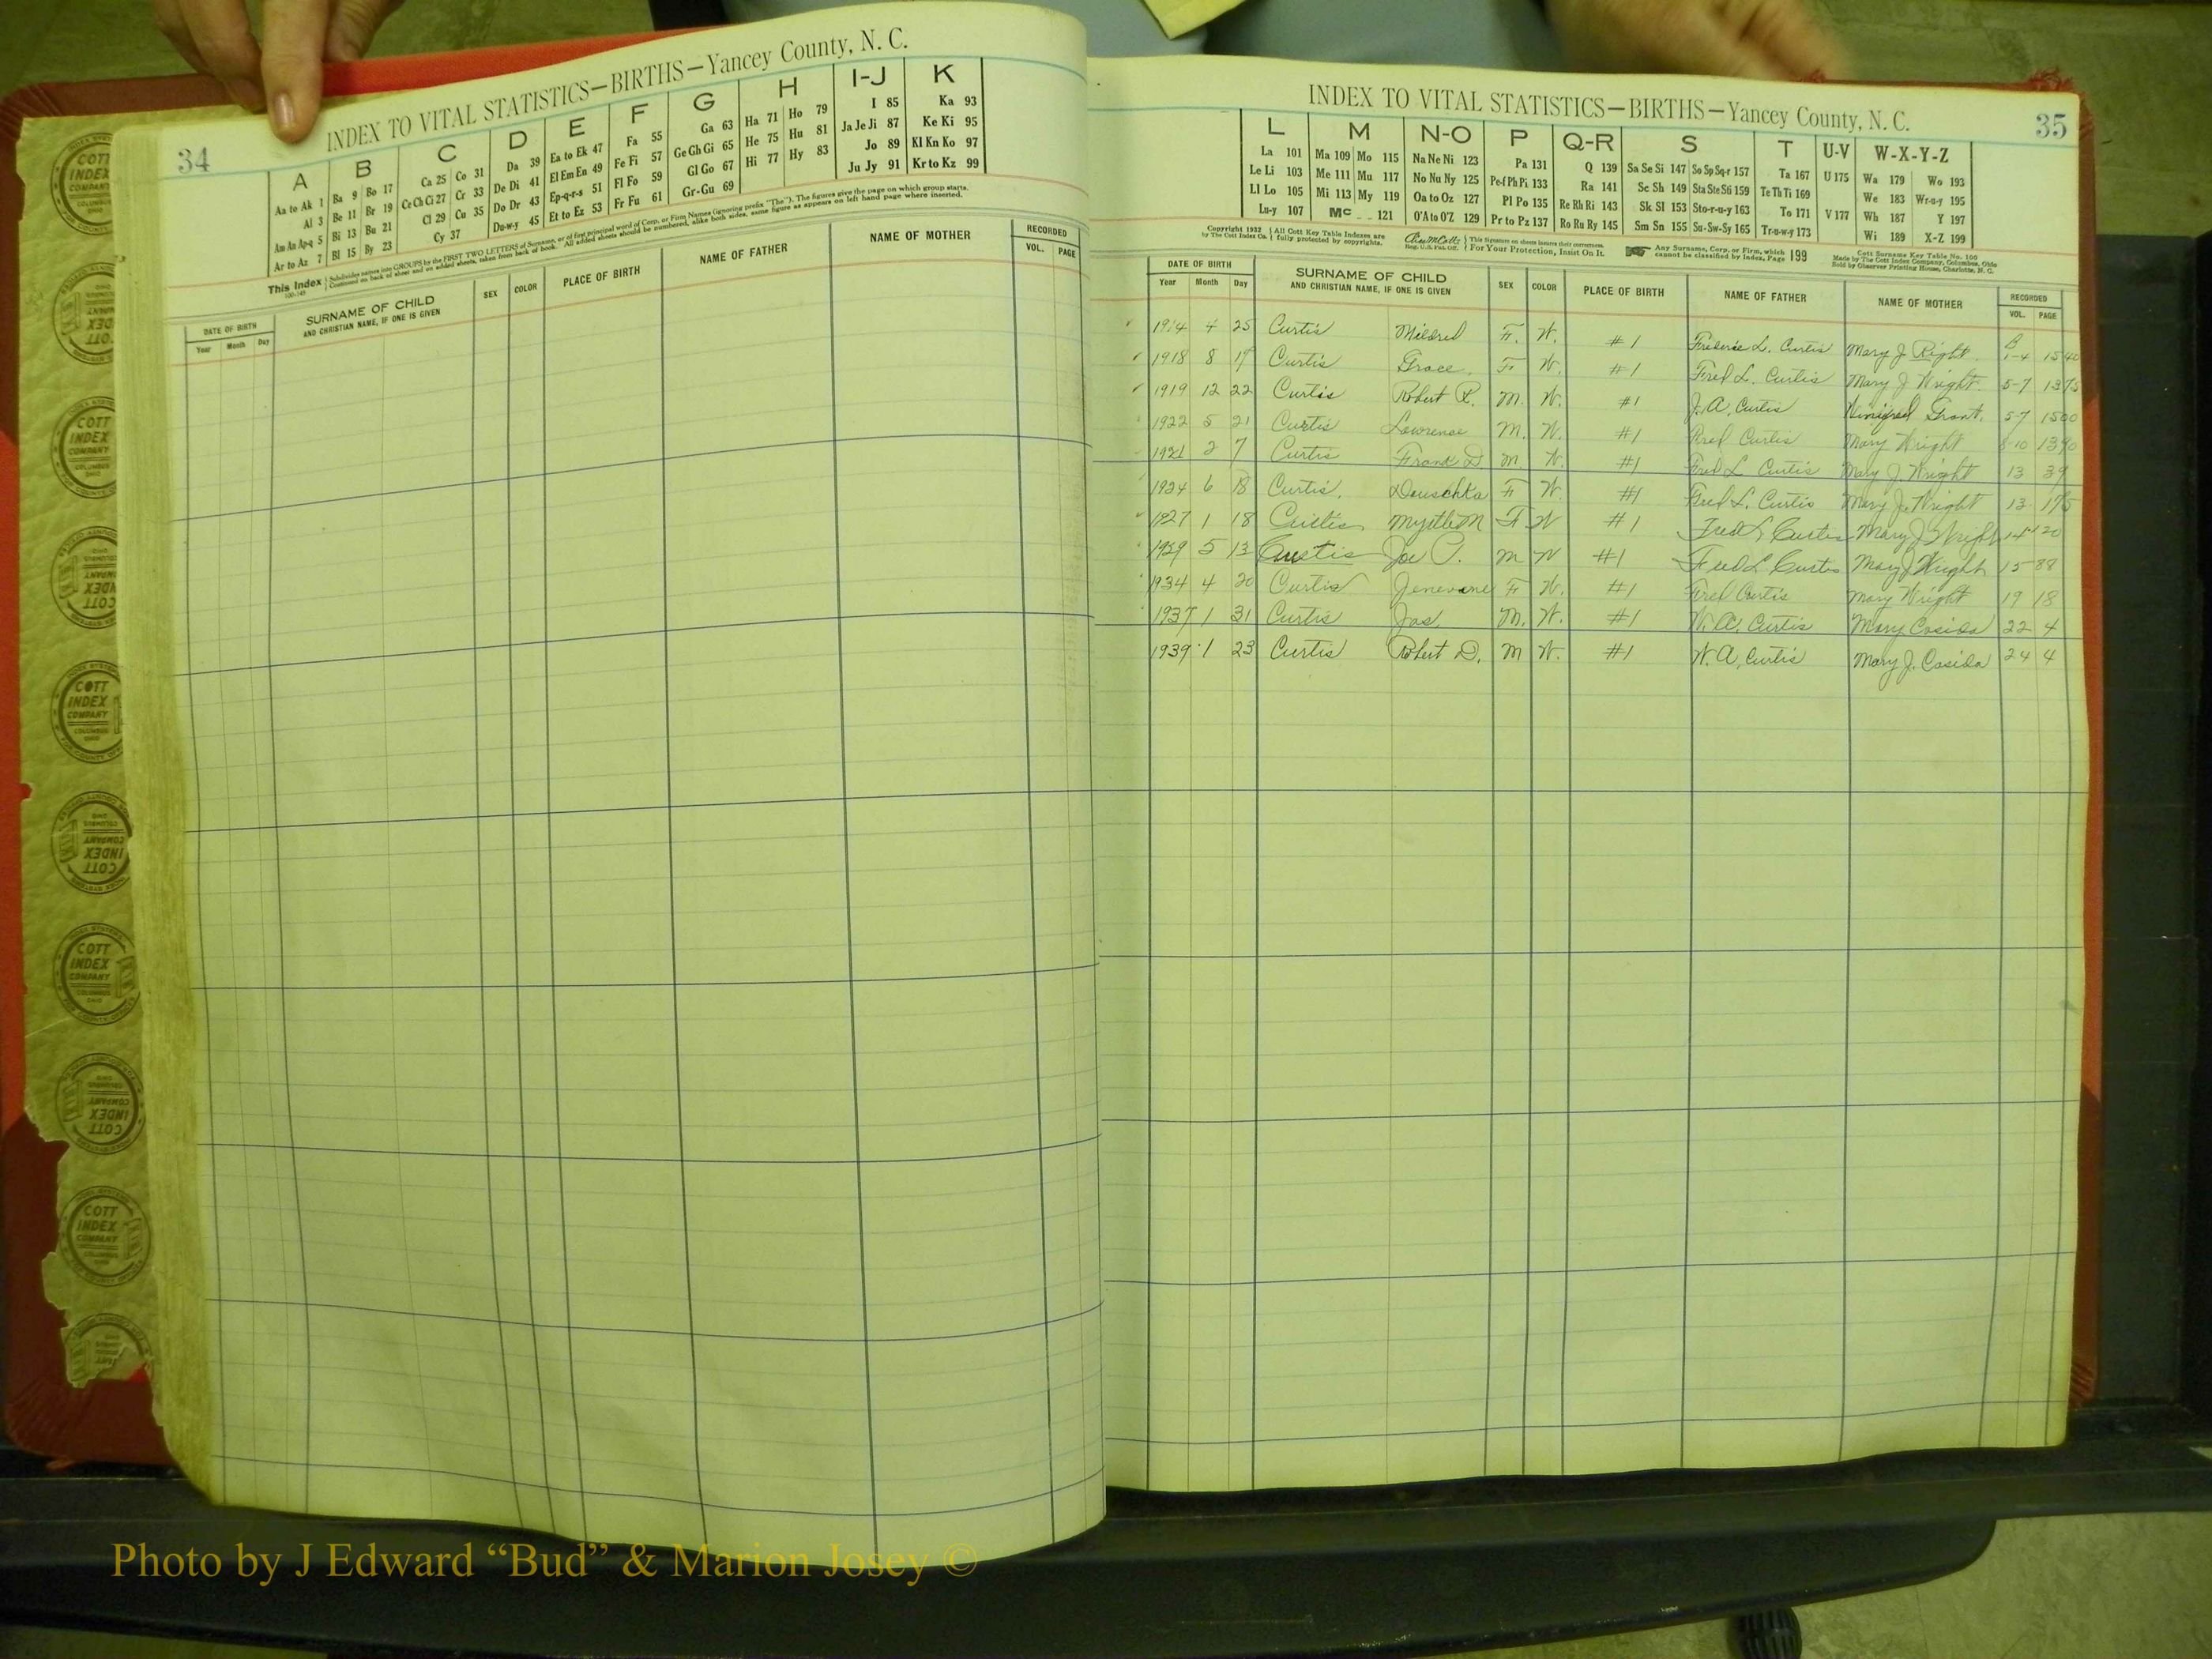 34
INDEX TO VITAL STATISTICS—BIRTHS—Yancey County, N. C.
A B C D E F G H I-J K
Aa to Ak 1 Ba 9 Bo 17 Ca 25 Co 31 Da 39 Ea to Ek 47 Fa 55 Ga 63 Ha 71 Ho 79 I 85 Ka 93
Al 3 Be 11 Br 19 Ce Ch Ci 27 Cr 33 De Di 41 El Em En 49 Fe Fi 57 Ge Gh Gi 65 He 75 Hu 81 Ja Je Ji 87 Ke Ki 95
Am An Ap-q 5 Bi 13 Bu 21 Cl 29 Cu 35 Do Dr 43 Ep-q-r-s 51 Fl Fo 59 Gl Go 67 Hi 77 Hy 83 Jo 89 Kl Kn Ko 97
Ar to Az 7 Bl 15 By 23 Cy 37 Du-w-y 45 Et to Ez 53 Fr Fu 61 Gr-Gu 69 Ju Jy 91 Kr to Kz 99
This Index Subdivides names into GROUPS by the FIRST TWO LETTERS of Surname, or of first principal word of Corp. or Firm Names (ignoring prefix "The"). The figures give the page on which group starts.
100-149 Continued on back of sheet and on added sheets, taken from back of book. All added sheets should be numbered, alike both sides, same figure as appears on left hand page where inserted.
DATE OF BIRTH SURNAME OF CHILD SEX COLOR PLACE OF BIRTH NAME OF FATHER NAME OF MOTHER RECORDED
Year Month Day AND CHRISTIAN NAME, IF ONE IS GIVEN VOL. PAGE
INDEX TO VITAL STATISTICS—BIRTHS—Yancey County, N. C.
35
L M N-O P Q-R S T U-V W-X-Y-Z
La 101 Ma 109 Mo 115 Na Ne Ni 123 Pa 131 Q 139 Sa Se Si 147 So Sp Sq-r 157 Ta 167 U 175 Wa 179 Wo 193
Le Li 103 Me 111 Mu 117 No Nu Ny 125 Pe-f Ph Pi 133 Ra 141 Sc Sh 149 Sta Ste Sti 159 Te Th Ti 169 We 183 Wr-u-y 195
Ll Lo 105 Mi 113 My 119 Oa to Oz 127 Pl Po 135 Re Rh Ri 143 Sk Sl 153 Sto-r-u-y 163 To 171 V 177 Wh 187 Y 197
Lu-y 107 Mc 121 O'A to O'Z 129 Pr to Pz 137 Ro Ru Ry 145 Sm Sn 155 Su-Sw-Sy 165 Tr-u-w-y 173 Wi 189 X-Z 199
Copyright 1932 by The Cott Index Co. All Cott Key Table Indexes are fully protected by copyrights. Reg. U.S. Pat. Off. This Signature on sheets insures their correctness. For Your Protection, Insist On It. Any Surname, Corp. or Firm, which cannot be classified by Index, Page 199 Cott Surname Key Table No. 100 Made by The Cott Index Company, Columbus, Ohio Sold by Observer Printing House, Charlotte, N. C.
DATE OF BIRTH SURNAME OF CHILD SEX COLOR PLACE OF BIRTH NAME OF FATHER NAME OF MOTHER RECORDED
Year Month Day AND CHRISTIAN NAME, IF ONE IS GIVEN VOL. PAGE
1914 4 25 Curtis Mildred F. W. #1 Frederic L. Curtis Mary J. Right B 1-4 1540
1918 8 19 Curtis Grace F W. #1 Fred L. Curtis Mary J Wright 5-7 1375
1919 12 22 Curtis Robert R. M. W. #1 J. A. Curtis Winifred Grant. 5-7 1500
1922 5 21 Curtis Lawrence M. W. #1 Fred Curtis Mary Wright 8-10 1390
1921 2 7 Curtis Frank D M W. #1 Fred L Curtis Mary J. Wright 13 39
1924 6 18 Curtis. Deuschka F W. #1 Fred L. Curtis Mary J. Wright 13 175
1927 1 18 Curtis Myrtle M F W #1 Fred L Curtis Mary J Wright 14 120
1929 5 13 Curtis Joe P. M W #1 Fred L Curtis Mary J Wright 15 88
1934 4 20 Curtis Jenevane F W. #1 Fred Curtis Mary Wright 19 18
1937 1 31 Curtis Jas. M. W. #1 W. A. Curtis Mary Casida 22 4
1939 1 23 Curtis Robert D. M W. #1 W. A. Curtis Mary J. Casida 24 4
COTT INDEX COMPANY COLUMBUS OHIO
Photo by J Edward “Bud” & Marion Josey ©